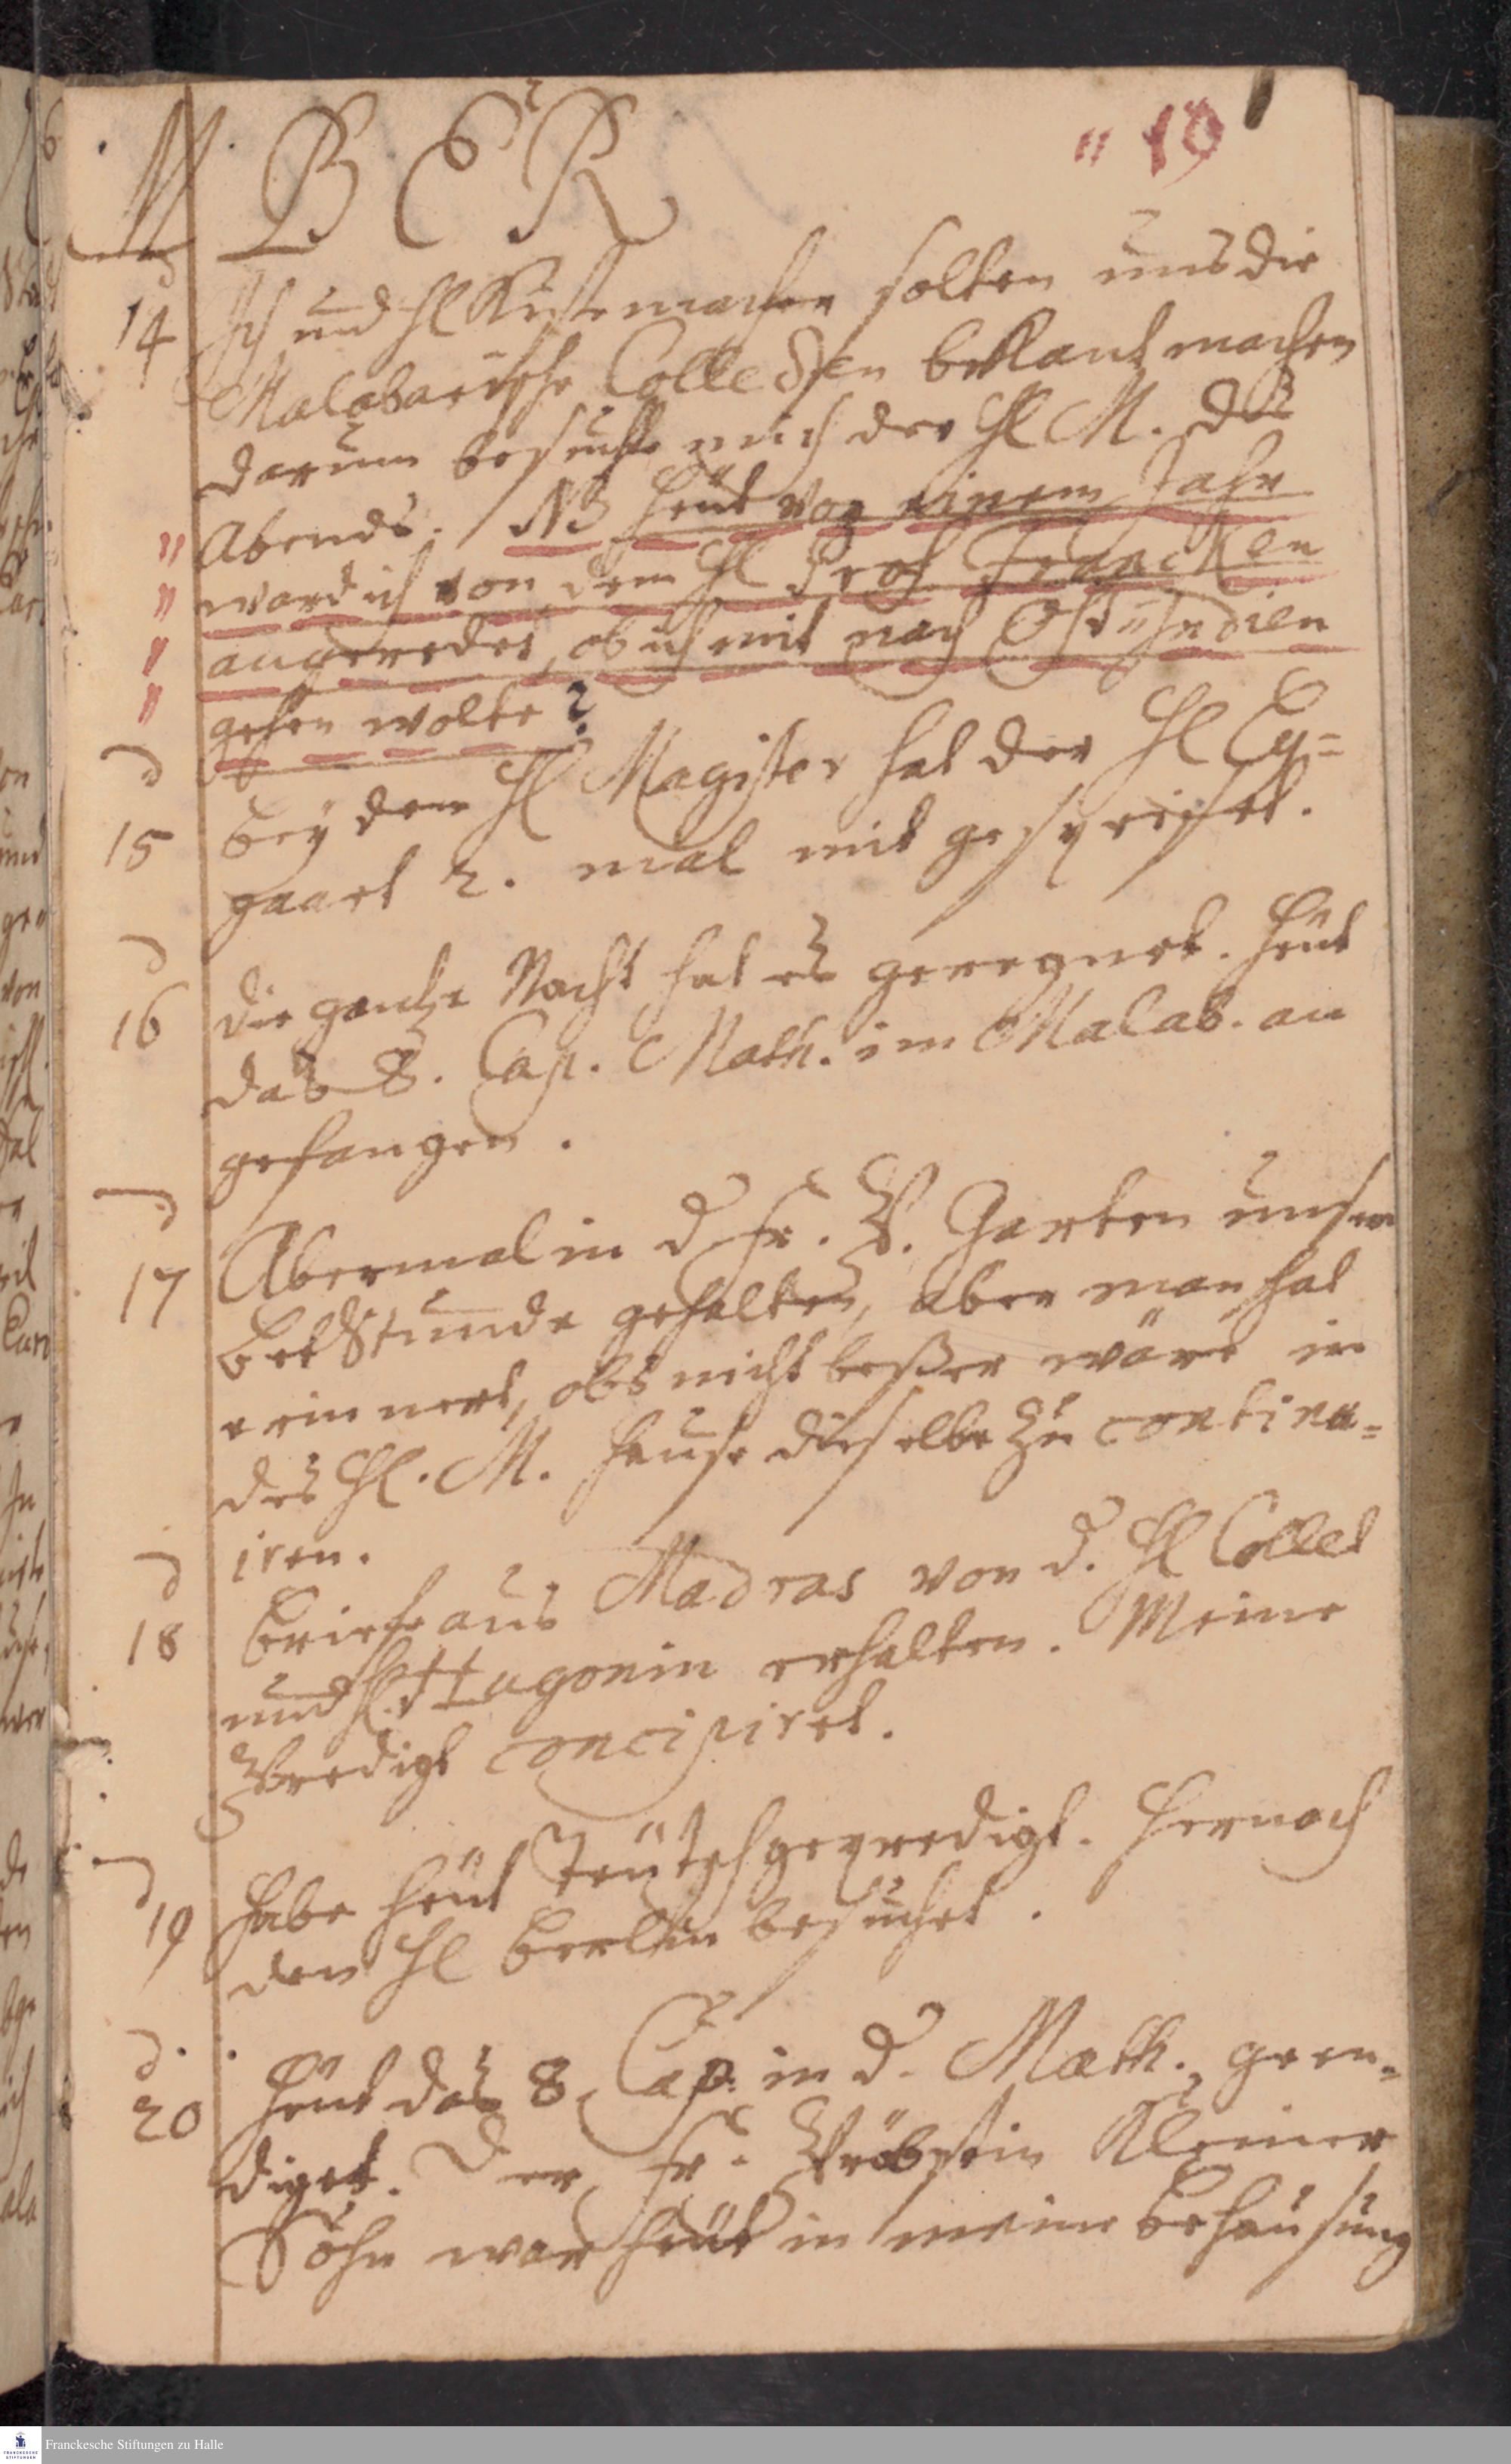 M B E R
" 19
d 14 Ich und Hl Kistenmacher solten uns die
Malabarische Collecten bekant machen
darum besuchte mich der Hl M. des
Abends. NB Heut vor einem Jahr
" ward ich von dem Hl Prof Francken
" angeredet, ob ich mit nach Ost-Indien
" gehen wolte?
d 15 Bey dem Hl Magister hat der Hl Ey=
gaart 2. mal mit gespeiset.
d 16 Die gantze Nacht hat es geregnet. Heut
das 8. Cap. Math. im Malab. an
gefangen.
d 17 Abermal in d Fr. P. Garten unsere
BetStunde gehalten, aber man hat
erinnert, obs nicht beßer wäre in
des Hl. M. Hause dieselbe zu continu=
iren.
d 18 Briefe aus Madras von d. Hl Collet
und Hl. Hugonin erhalten. Meine
Predigt concipiret.
d 19 Habe heut Teütsch geprediget. Hernach
den Hl Berlin besuchet.
d. 20 Heut das 8. Cap. in d. Math. geen=
diget. Der Fr. Pröbstin Kleiner
Sohn war heut in meine Behausung
Franckesche Stiftungen zu Halle